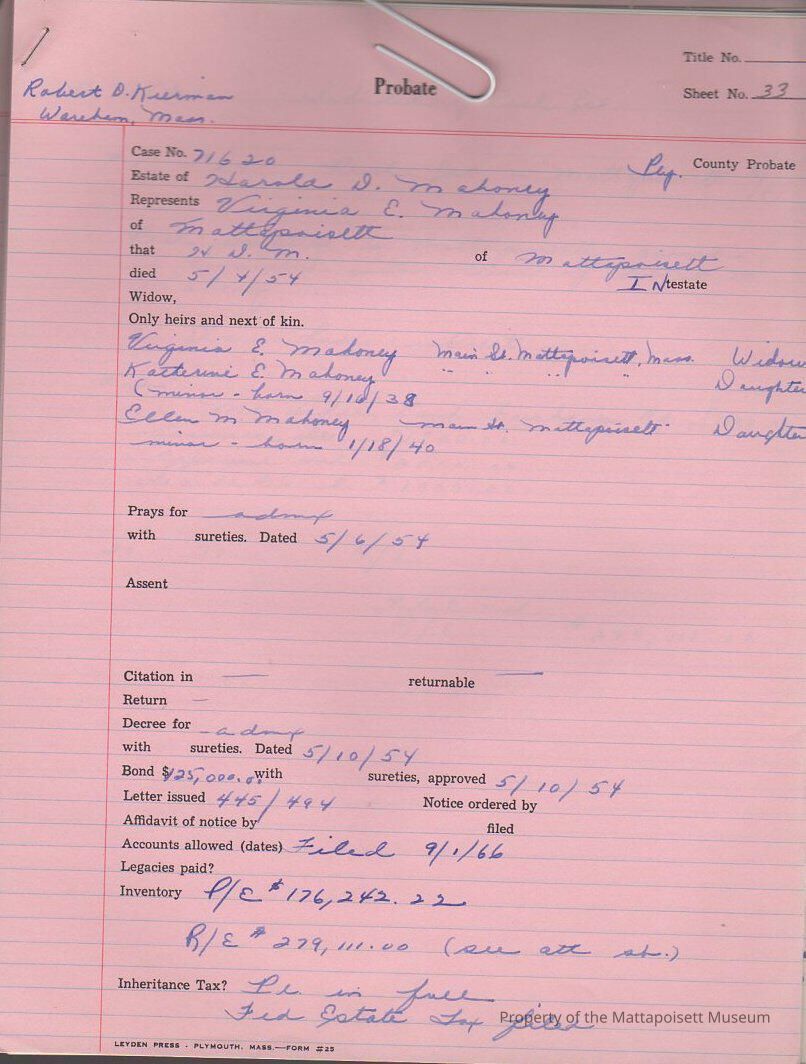 Title No.
Robert D. Kiernan
Wareham, Mass.
Probate
Sheet No. 33
Case No. 71620
Ply. County Probate
Estate of Harold D. Mahoney
Represents Virginia E. Mahoney
of Mattapoisett
that H. D. M. of Mattapoisett
died 5/4/54 INtestate
Widow,
Only heirs and next of kin.
Virginia E. Mahoney Main St. Mattapoisett, Mass. Widow
Katherine E. Mahoney " " " " Daughter
(minor - born 9/10/38
Ellen M Mahoney Main St. Mattapoisett Daughter
minor - born 1/18/40
Prays for admx
with sureties. Dated 5/6/54
Assent
Citation in — returnable —
Return —
Decree for admx
with sureties. Dated 5/10/54
Bond $125,000.00 with sureties, approved 5/10/54
Letter issued 445/494 Notice ordered by
Affidavit of notice by filed
Accounts allowed (dates) Filed 9/1/66
Legacies paid?
Inventory P/E $176,242.22
R/E $279,111.00 (see att sh.)
Inheritance Tax? Pd. in full
Fed Estate Tax filed
Property of the Mattapoisett Museum
LEYDEN PRESS - PLYMOUTH, MASS.—FORM #25